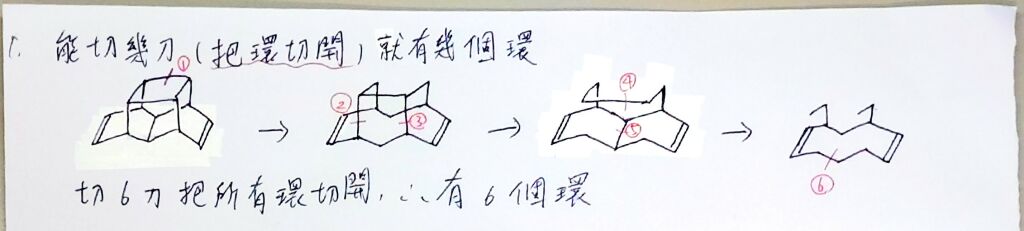 1. 能切幾刀(把環切開)就有幾個環
① ② ③ ④ ⑤ ⑥
切6刀把所有環切開,∴有6個環